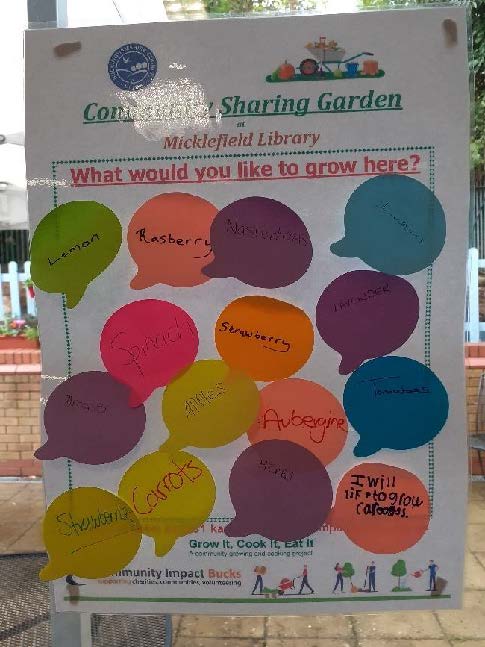 Community Sharing Garden
at
Micklefield Library
What would you like to grow here?
Lemon
Rasberry
Nasturtiums
LAVENDER
Spinach
Strawberry
Tomatoes
APPLES
Aubergine
Carrots
I will
lik to grow
caroots.
Strawberries
Grow It, Cook It, Eat It
A community growing and cooking project
Community Impact Bucks
supporting charities, communities, volunteering